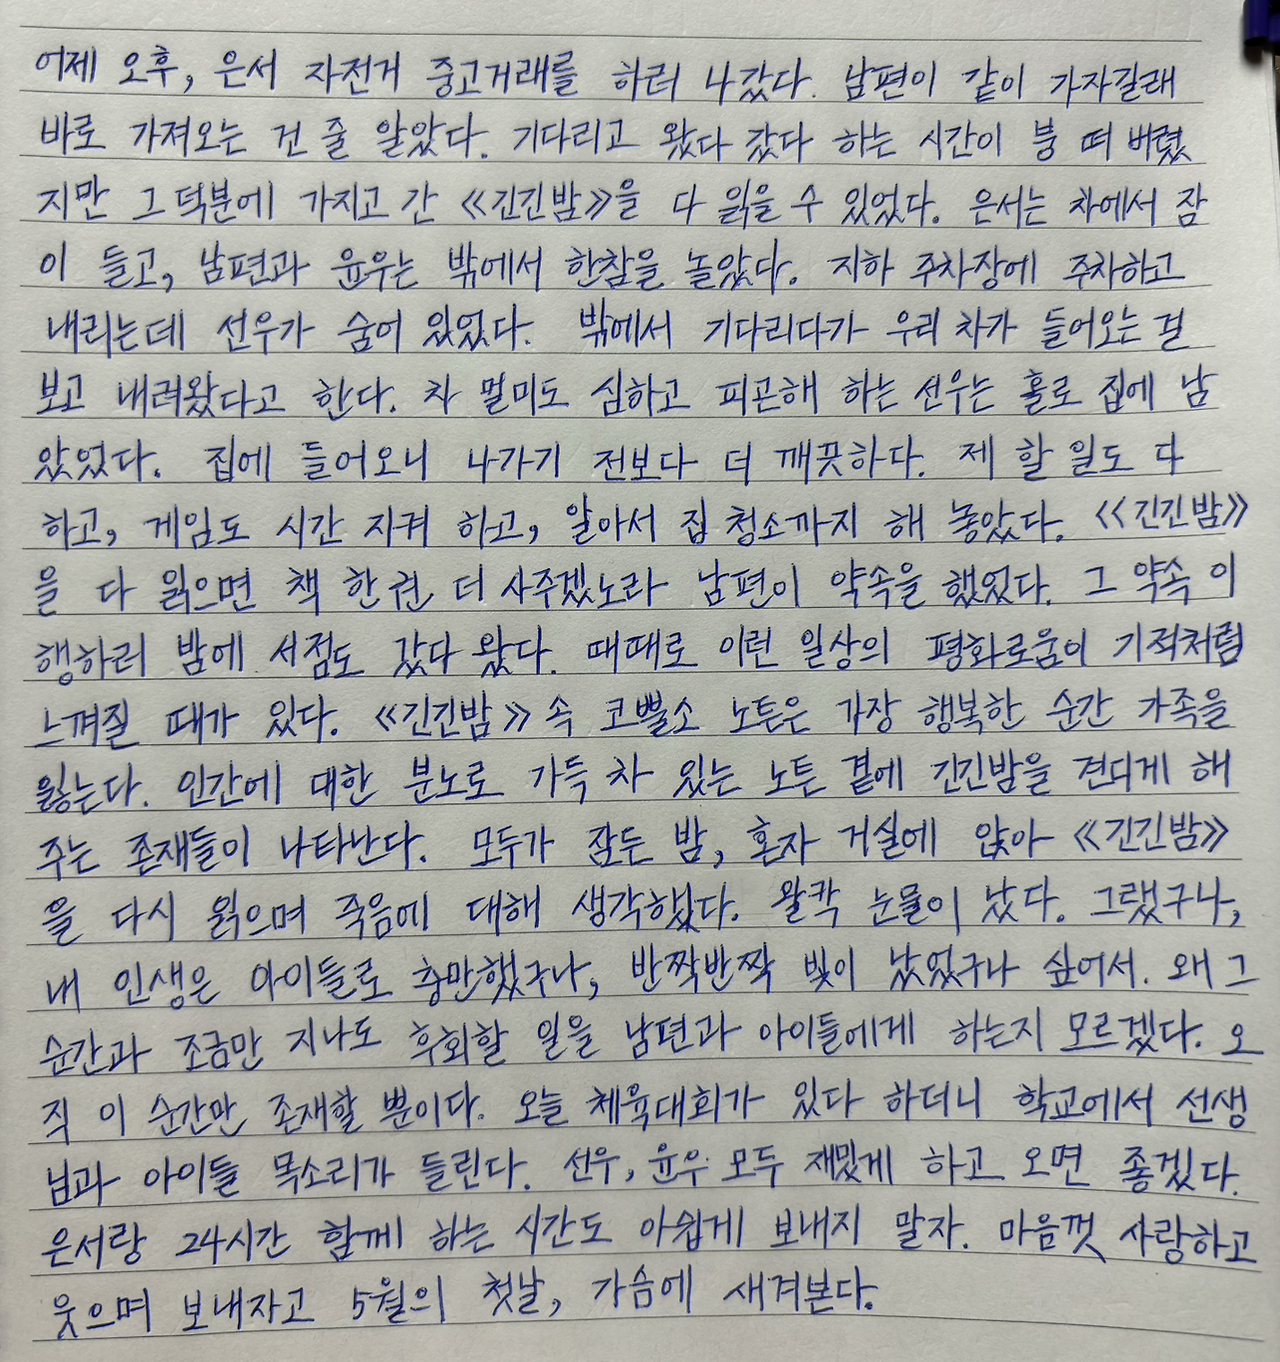 어제 오후, 은서 자전거 중고거래를 하러 나갔다. 남편이 같이 가자길래
바로 가져오는 건 줄 알았다. 기다리고 왔다 갔다 하는 시간이 붕 떠 버렸
지만 그 덕분에 가지고 간 《긴긴밤》을 다 읽을 수 있었다. 은서는 차에서 잠
이 들고, 남편과 윤우는 밖에서 한참을 놀았다. 지하 주차장에 주차하고
내리는데 선우가 숨어 있었다. 밖에서 기다리다가 우리 차가 들어오는 걸
보고 내려왔다고 한다. 차 멀미도 심하고 피곤해 하는 선우는 홀로 집에 남
았었다. 집에 들어오니 나가기 전보다 더 깨끗하다. 제 할 일도 다
하고, 게임도 시간 지켜 하고, 알아서 집 청소까지 해 놓았다. 《긴긴밤》
을 다 읽으면 책 한 권 더 사주겠노라 남편이 약속을 했었다. 그 약속 이
행하러 밤에 서점도 갔다 왔다. 때때로 이런 일상의 평화로움이 기적처럼
느껴질 때가 있다. 《긴긴밤》 속 코뿔소 노든은 가장 행복한 순간 가족을
잃는다. 인간에 대한 분노로 가득 차 있는 노든 곁에 긴긴밤을 견디게 해
주는 존재들이 나타난다. 모두가 잠든 밤, 혼자 거실에 앉아 《긴긴밤》
을 다시 읽으며 죽음에 대해 생각했다. 왈칵 눈물이 났다. 그랬구나,
내 인생은 아이들로 충만했구나, 반짝반짝 빛이 났었구나 싶어서. 왜 그
순간과 조금만 지나도 후회할 일을 남편과 아이들에게 하는지 모르겠다. 오
직 이 순간만 존재할 뿐이다. 오늘 체육대회가 있다 하더니 학교에서 선생
님과 아이들 목소리가 들린다. 선우, 윤우 모두 재밌게 하고 오면 좋겠다.
은서랑 24시간 함께 하는 시간도 아쉽게 보내지 말자. 마음껏 사랑하고
웃으며 보내자고 5월의 첫날, 가슴에 새겨본다.